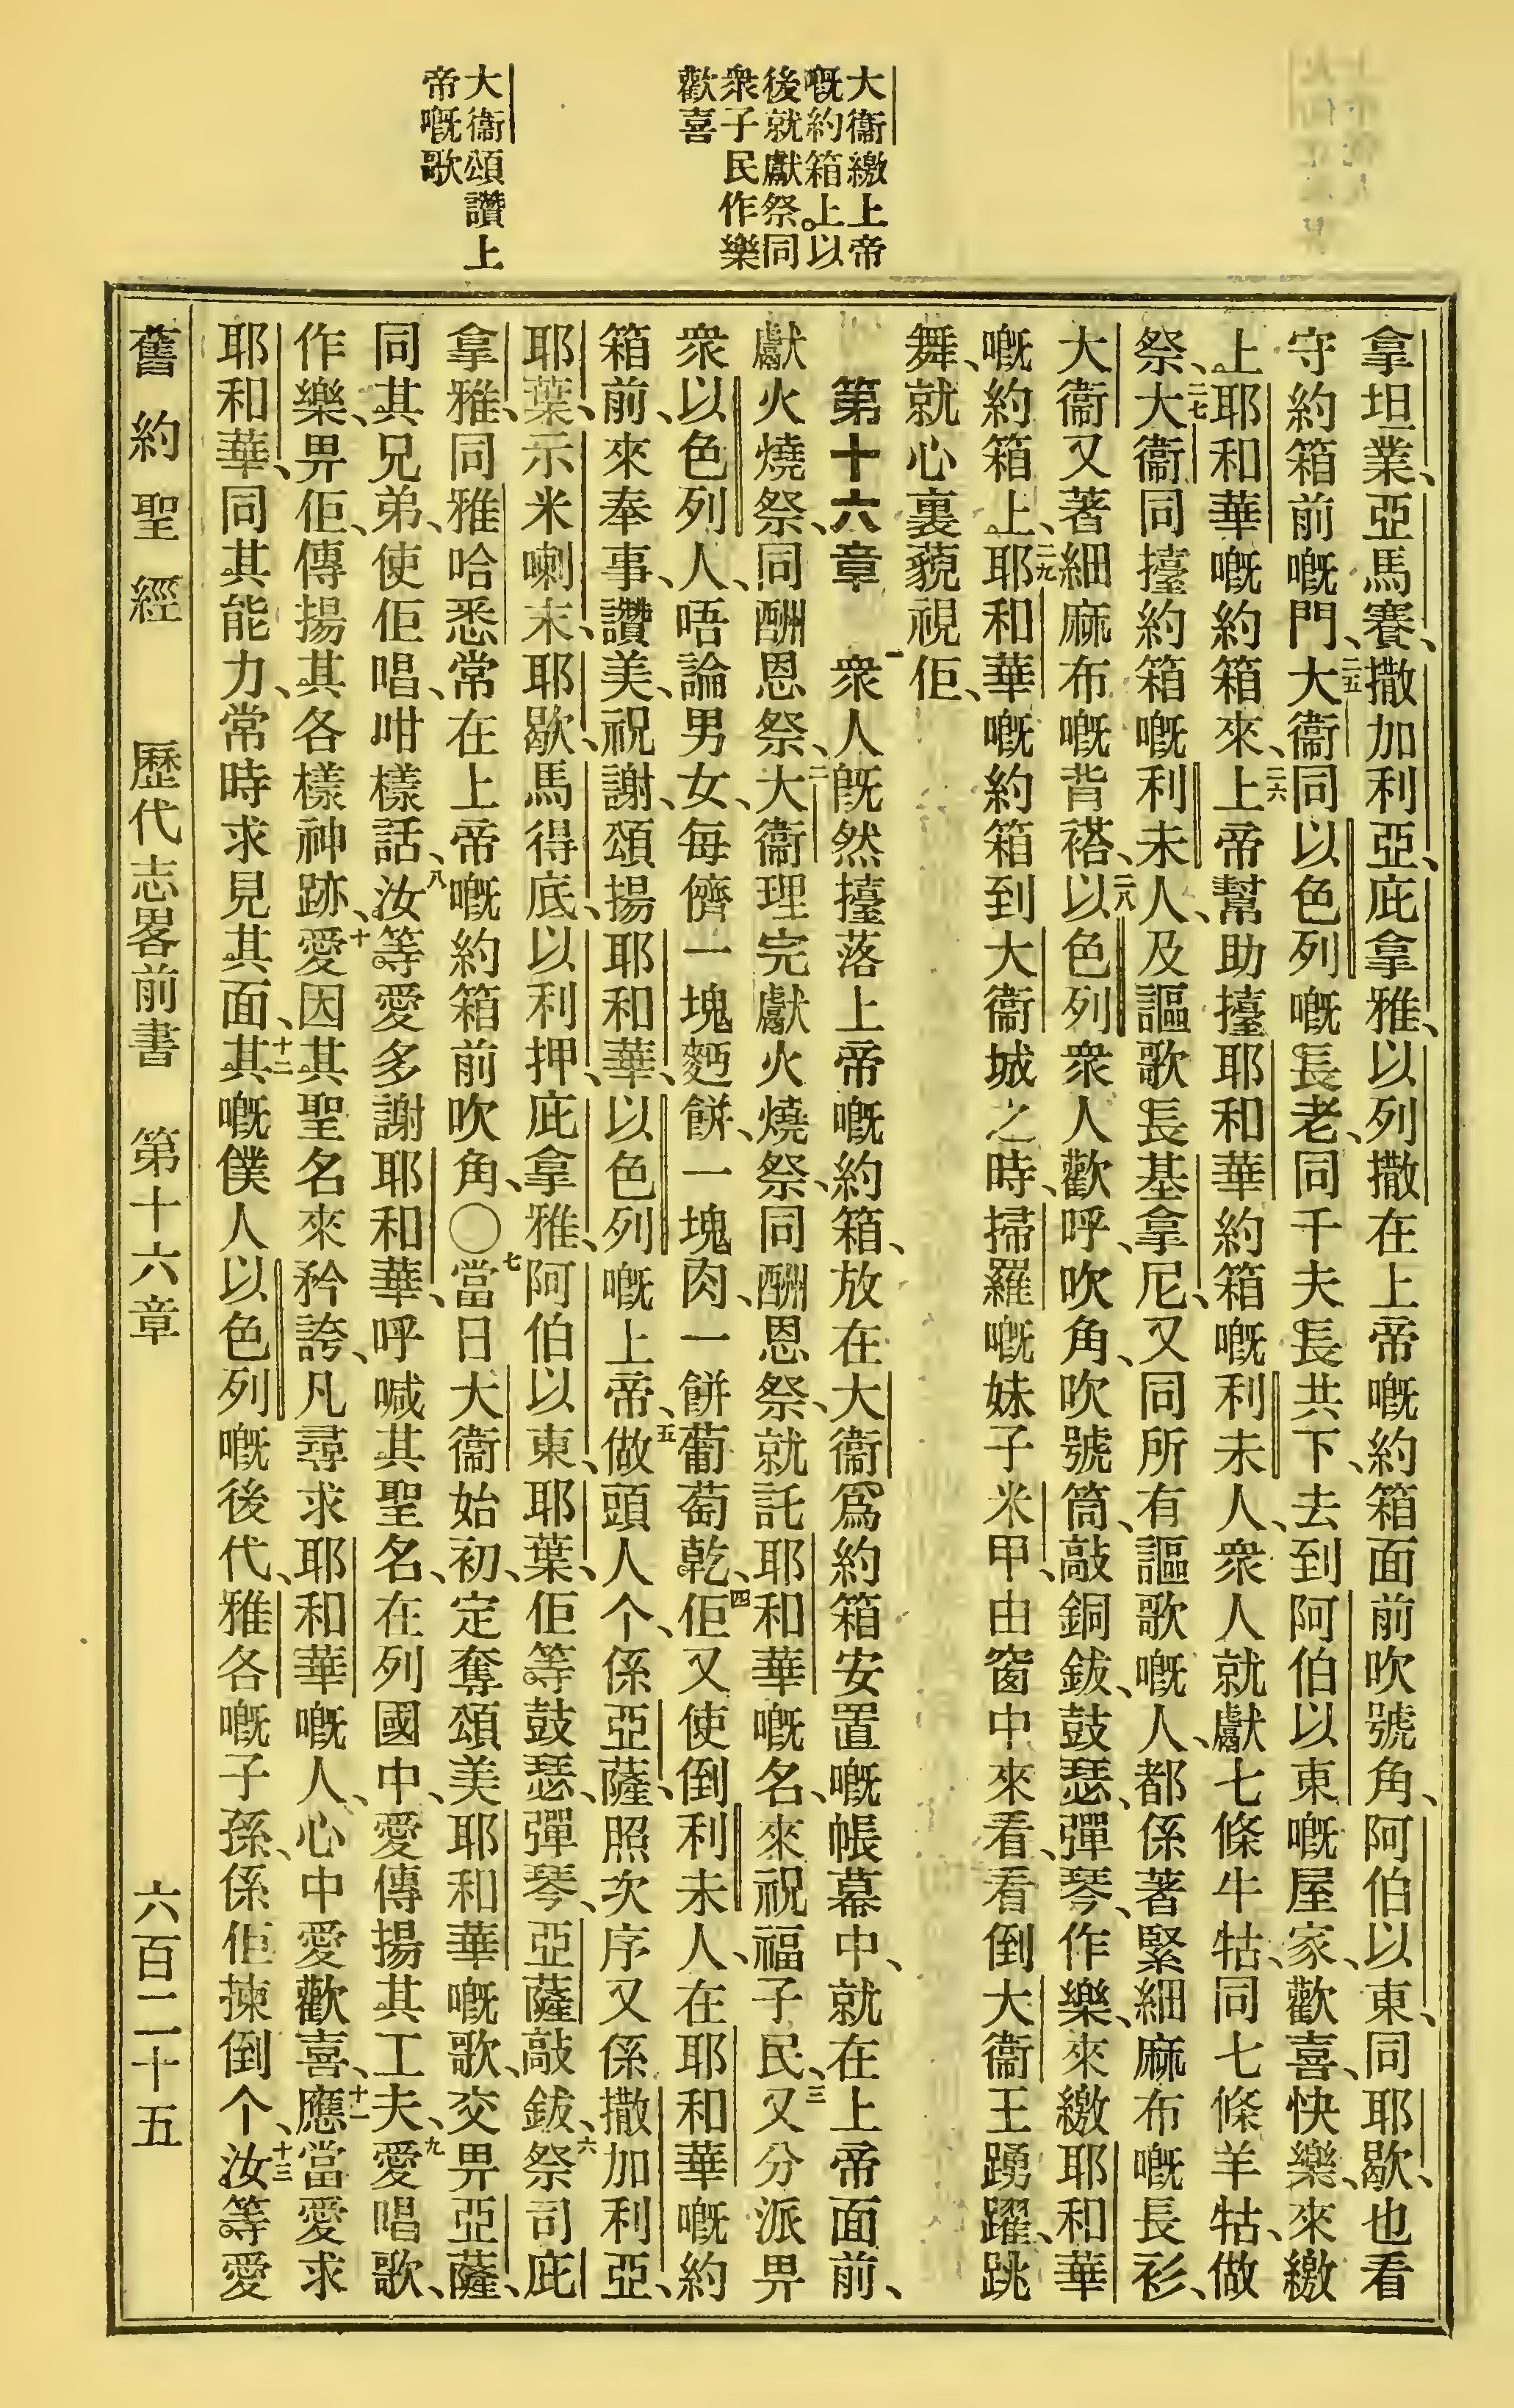 大衞繳上帝
嘅約箱上以
後就獻祭。同
衆子民作樂
歡喜
大衞頌讚上
帝嘅歌
拿坦業、亞馬賽、撒加利亞、庇拿雅、以列撒在上帝嘅約箱面前吹號角、阿伯以東、同耶歇、也看
守約箱前嘅門、二五大衞同以色列嘅長老、同千夫長共下、去到阿伯以東嘅屋家、歡喜、快樂、來繳
上耶和華嘅約箱來、二六上帝幫助擡耶和華約箱嘅利未人、衆人就獻七條牛牯、同七條羊牯、做
祭、二七大衞同擡約箱嘅利未人、及謳歌長基拿尼、又同所有謳歌嘅人、都係著緊細麻布嘅長衫、
大衞又著細麻布嘅背褡、二八以色列衆人歡呼、吹角、吹號筒、敲銅鈸、鼓瑟、彈琴、作樂、來繳耶和華
嘅約箱上、二九耶和華嘅約箱到大衞城之時、掃羅嘅妹子米甲、由窗中來看、看倒大衞王踴躍、跳
舞、就心裏藐視佢、
第十六章 一衆人旣然擡落上帝嘅約箱、放在大衞爲約箱安置嘅帳幕中、就在上帝面前、
獻火燒祭、同酬恩祭、二大衞理完獻火燒祭、同酬恩祭、就託耶和華嘅名、來祝福子民、三又分派畀
衆以色列人、唔論男女、每儕一塊麪餅、一塊肉、一餅葡萄乾、四佢又使倒利未人、在耶和華嘅約
箱前、來奉事、讚美、祝謝、頌揚耶和華、以色列嘅上帝、五做頭人个、係亞薩、照次序又係撒加利亞、
耶葉、示米喇末、耶歇、馬得底、以利押、庇拿雅、阿伯以東、耶葉、佢等鼓瑟、彈琴、亞薩敲鈸、六祭司庇
拿雅、同雅哈悉常在上帝嘅約箱前吹角、〇七當日大衞始初、定奪頌美耶和華嘅歌、交畀亞薩、
同其兄弟、使佢唱、咁樣話、八汝等愛多謝耶和華、呼喊其聖名、在列國中、愛傳揚其工夫、九愛唱歌、
作樂、畀佢、傳揚其各樣神跡、十愛因其聖名來矜誇、凡尋求耶和華嘅人、心中愛歡喜、十一應當愛求
耶和華、同其能力、常時求見其面、十二其嘅僕人以色列嘅後代、雅各嘅子孫、係佢揀倒个、十三汝等愛
舊約聖經 歷代志畧前書 第十六章 六百二十五